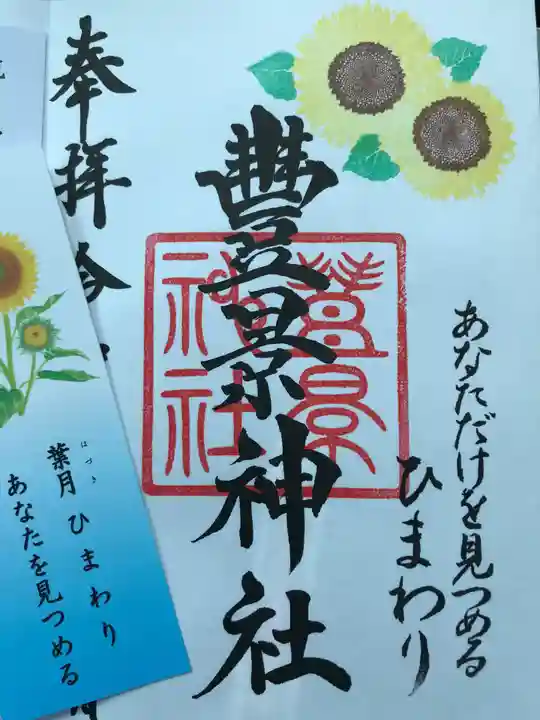 あなただけを見つめる
ひまわり
豐景神社
豊景
神社
奉拝
葉月 ひまわり
はづき
あなたを見つめる